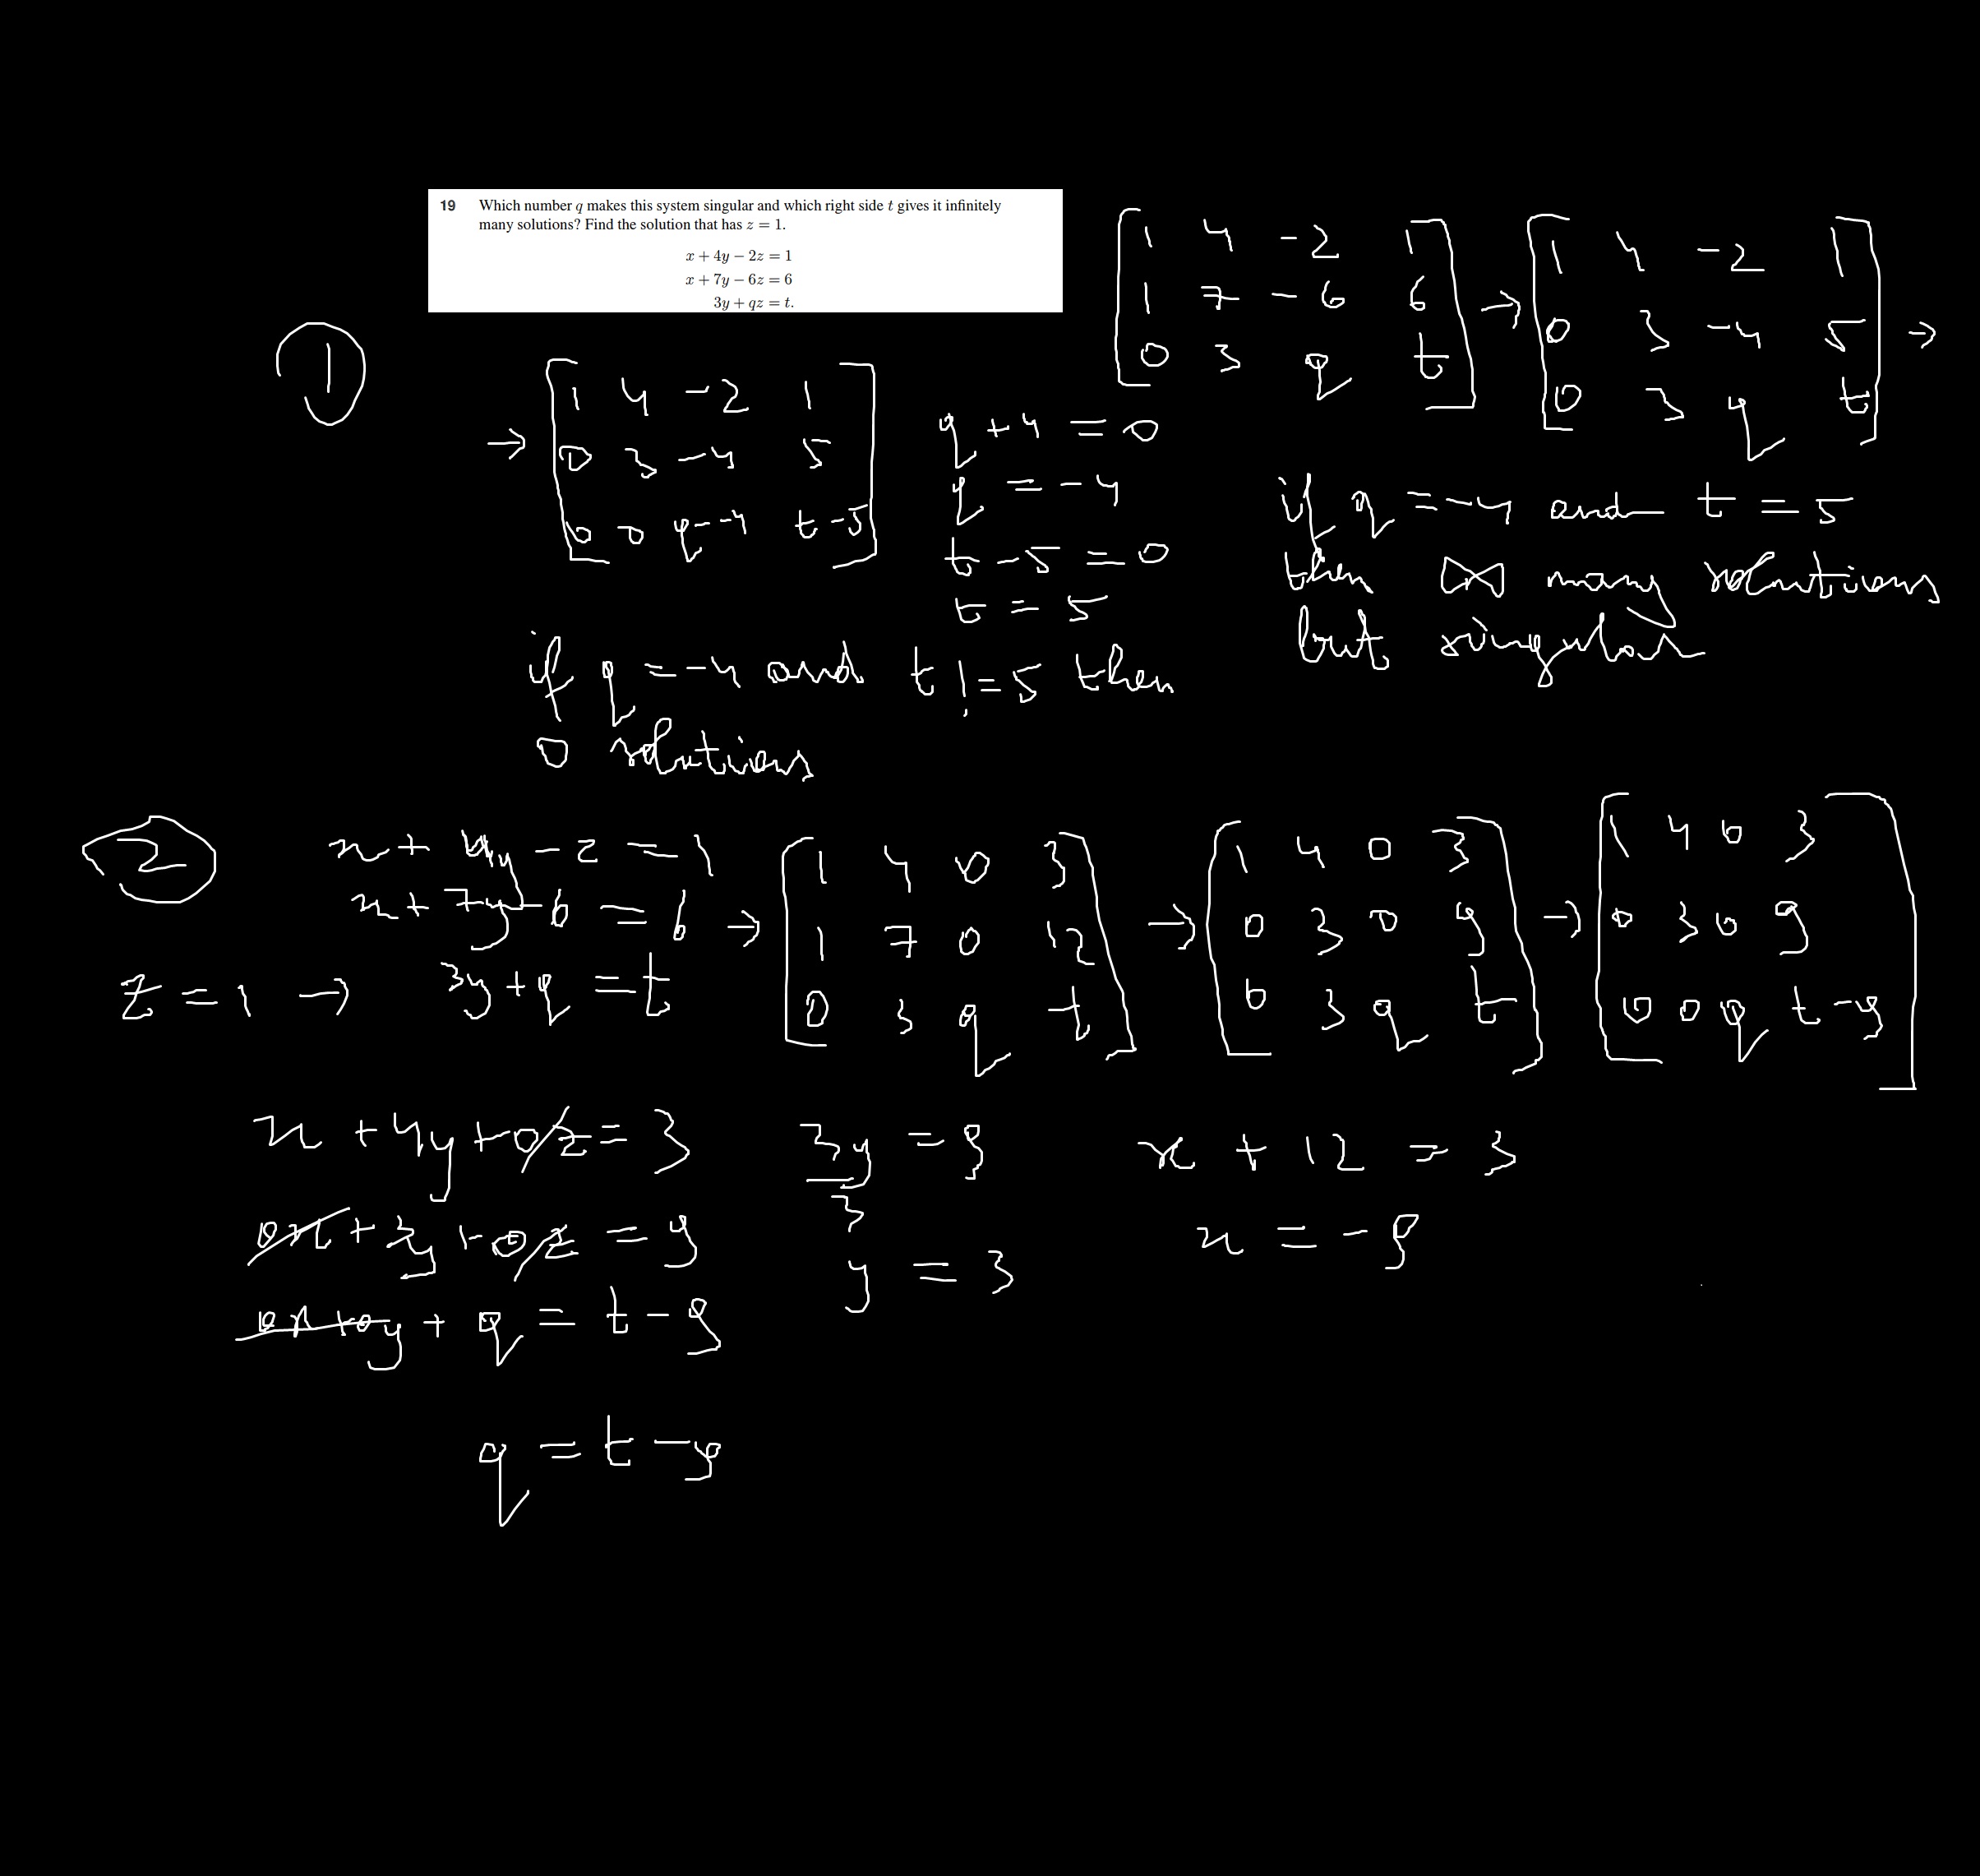 19 Which number q makes this system singular and which right side t gives it infinitely
many solutions? Find the solution that has z = 1.
x + 4y − 2z = 1
x + 7y − 6z = 6
3y + qz = t.
1 4 -2 1
1 7 -6 6
0 3 q t
→
1 4 -2 1
0 3 -4 5
0 3 q t
→
①
→
1 4 -2 1
0 3 -4 5
0 0 q--4 t-5
q + 4 = 0
q = -4
t - 5 = 0
t = 5
if q = -4 and t = 5
then ∞ many solutions
but singular
if q = -4 and t != 5 then
0 solutions
②
x + 4y - 2 = 1
x + 7y - 6 = 6
z = 1 → 3y + q = t
→
1 4 0 3
1 7 0 12
0 3 q t
→
1 4 0 3
0 3 0 9
0 3 q t
→
1 4 0 3
0 3 0 9
0 0 q t-9
x + 4y + 0z = 3
0x + 3y + 0z = 9
0x + 0y + q = t - 9
q = t - 9
3y = 9
3
y = 3
x + 12 = 3
x = -9